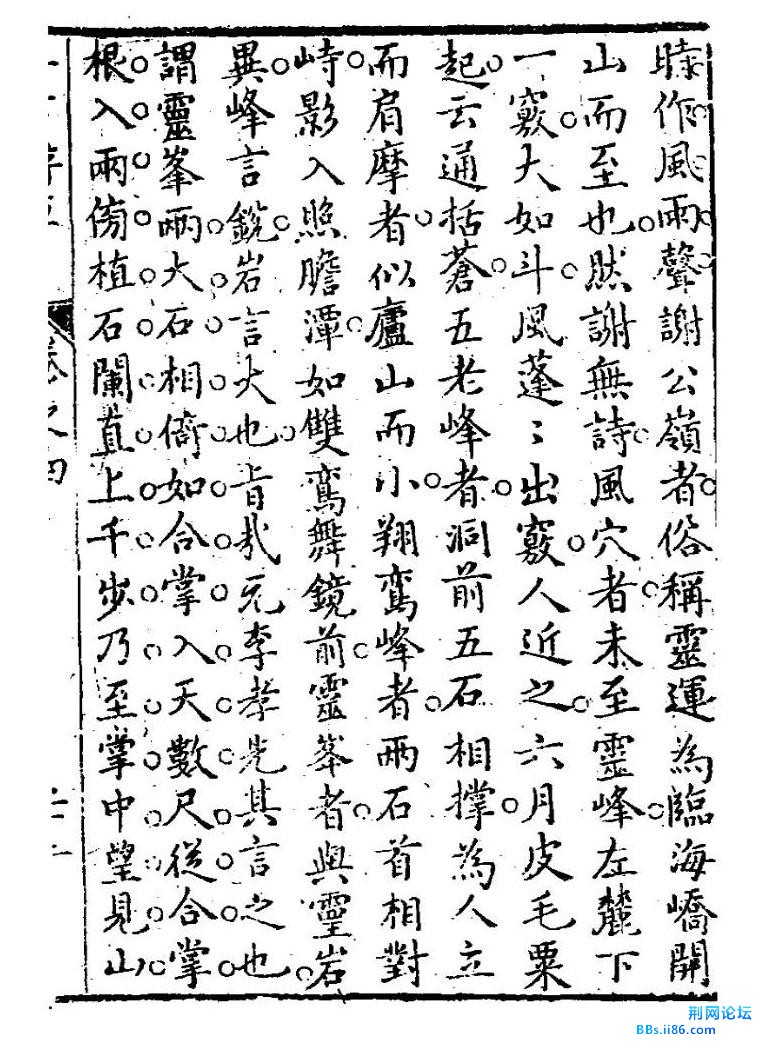 時作風雨聲謝公嶺者俗稱靈運為臨海嶠開
山而至也然謝無詩風穴者未至靈峰左麓下
一竅大如斗風蓬〻出竅人近之六月皮毛粟
起云通括蒼五老峰者洞前五石相撐為人立
而肩摩者似廬山而小翔鸞峰者兩石首相對
峙影入照膽潭如雙鸞舞鏡前靈峯者與靈岩
異峰言銳岩言大也旨哉元李孝先其言之也
謂靈峯兩大石相倚如合掌入天數尺從合掌
根入兩傍植石闌直上千步乃至掌中望見山
卷之四
荆网论坛
BBs.ii86.com